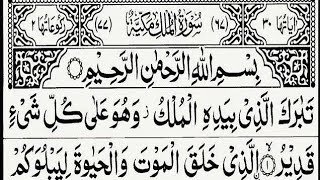 اٰيَاتُهَا ٣٠ (٦٧) سُوْرَةُ الْمُلْكِ مَكِّيَّةٌ (٧٧) رُكُوْعَاتُهَا ٢
بِسْمِ اللّٰهِ الرَّحْمٰنِ الرَّحِيْمِ
تَبٰرَكَ الَّذِيْ بِيَدِهِ الْمُلْكُ ز وَهُوَ عَلٰى كُلِّ شَيْءٍ
قَدِيْرُ ۨ ۝١ الَّذِيْ خَلَقَ الْمَوْتَ وَالْحَيٰوةَ لِيَبْلُوَكُمْ